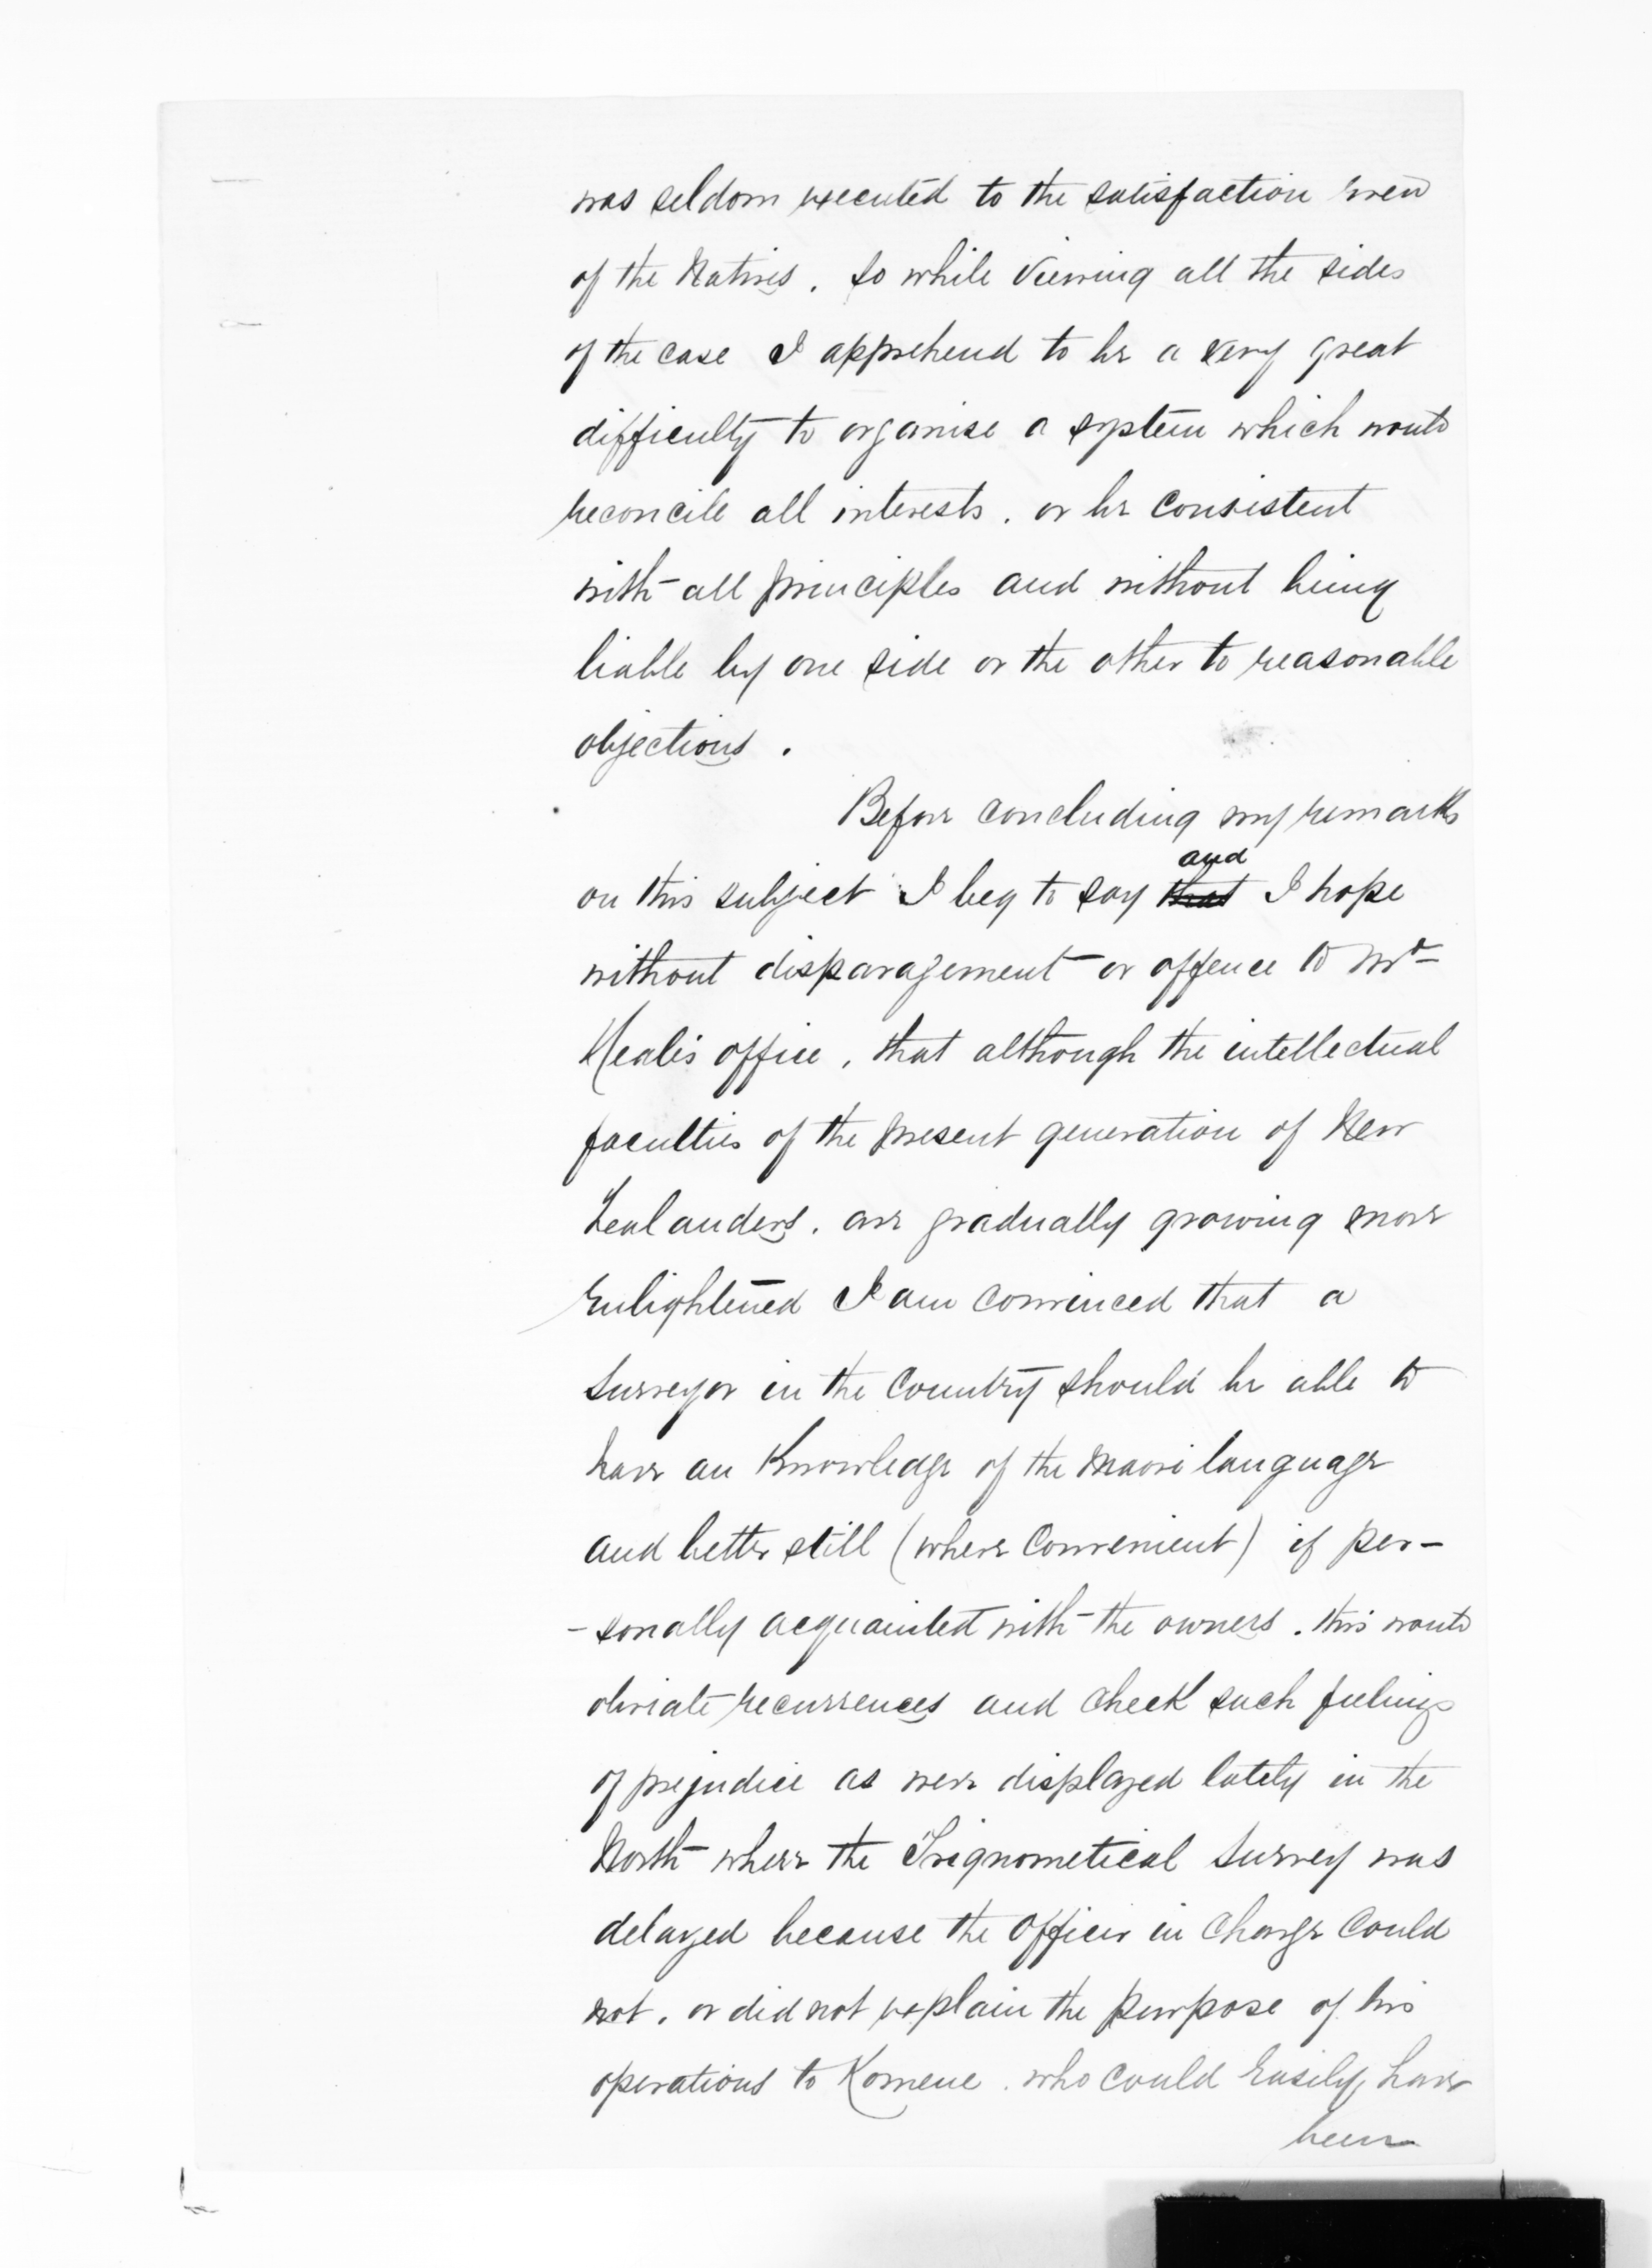 was seldom executed to the satisfaction even
of the Natives. So while viewing all the sides
of the case I apprehend to be a very great
difficulty to organise a system which would
reconcile all interests. or be consistent
with all principles and without being
liable by one side or the other to reasonable
objections.
Before concluding my remarks
on this subject I beg to say ~~that~~ and I hope
without disparagement or offence to Mr
Heale's office, that although the intellectual
faculties of the present generation of New
Zealanders. are gradually growing more
enlightened I am convinced that a
Surveyor in the Country should be able to
have an Knowledge of the Maori language
and better still (where Convenient) if per-
-sonally acquainted with the owners. this would
obviate recurrences and check such feelings
of prejudice as were displayed lately in the
North where the Trignometical Survey was
delayed because the Officer in Charge Could
not. or did not explain the purpose of his
operations to Komene. who could easily have
been